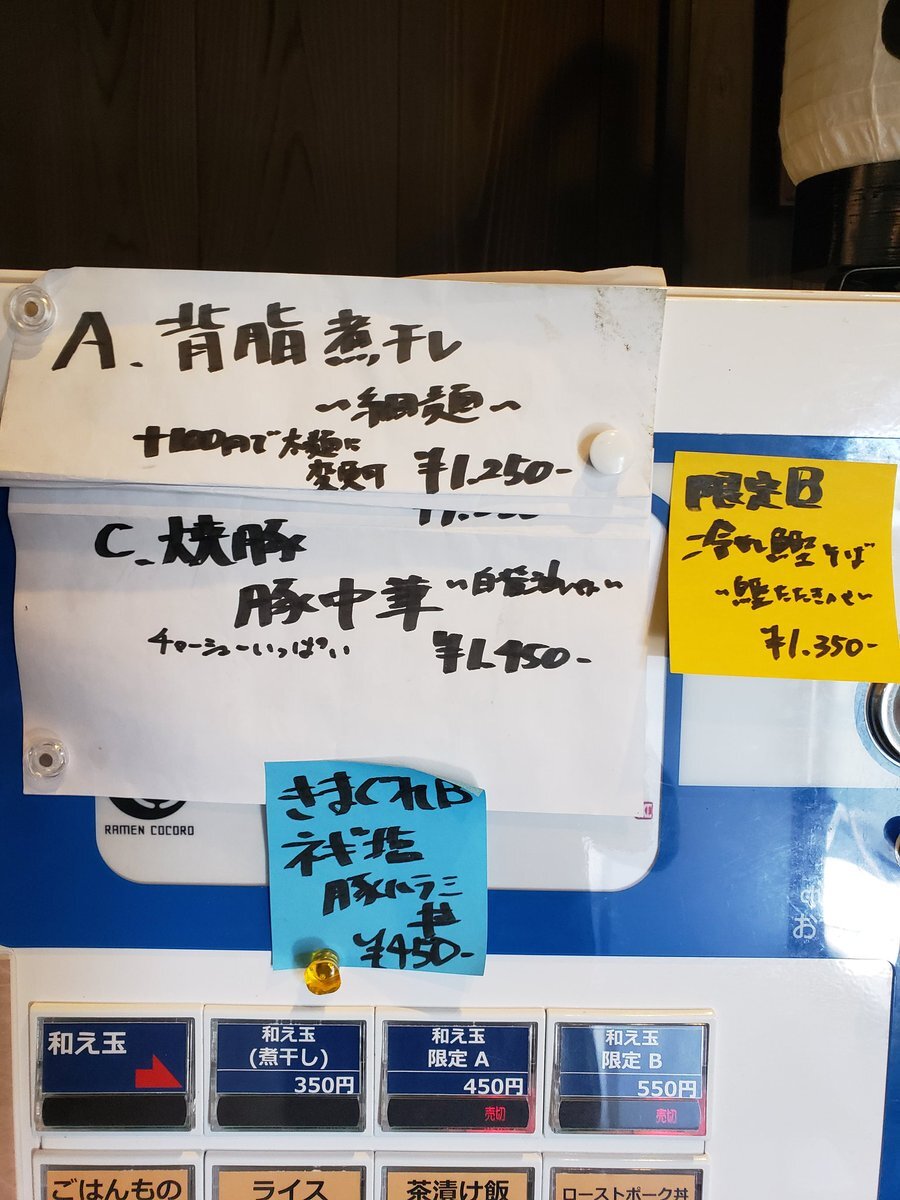 A、背脂煮干し
~細麺~
+100円で太麺に
変更可 ¥1,250-
C、焼豚
豚中華 ~白醤油~
チャーシューいっぱい ¥1,450-
限定B
冷や鰹そば
~鰹たたきのせ~
¥1,350-
きまぐれB
ネギ塩
豚ハラミ
丼
¥450-
RAMEN COCORO
お
和え玉
和え玉
(煮干し)
350円
和え玉
限定 A
450円
売切
和え玉
限定 B
550円
売切
ごはんもの
ライス
茶漬け飯
ローストポーク丼